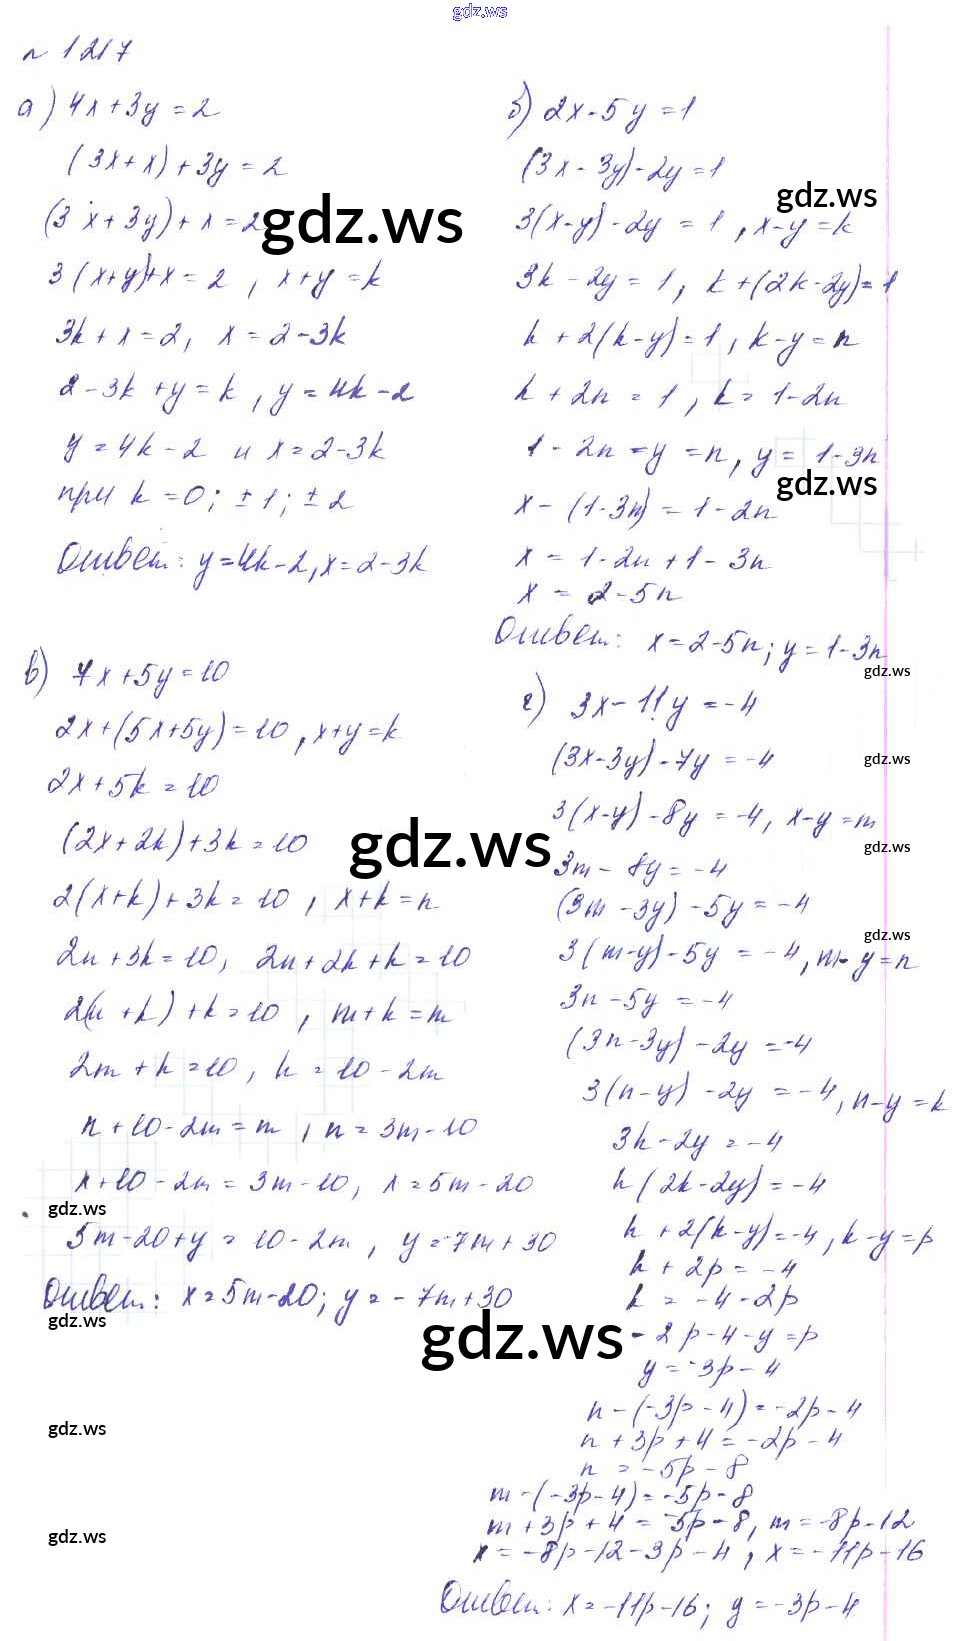 gdz.ws
n 1217
а) 4x+3y=2
(3x+x)+3y=2
(3x+3y)+x=2
3(x+y)+x=2, x+y=k
3k+x=2, x=2-3k
2-3k+y=k, y=4k-2
y=4k-2 и x=2-3k
при k=0; ±1; ±2
Ответ: y=4k-2, x=2-3k
б) 2x-5y=1
(3x-3y)-2y=1
3(x-y)-2y=1, x-y=k
3k-2y=1, k+(2k-2y)=1
k+2(k-y)=1, k-y=n
k+2n=1, k=1-2n
1-2n-y=n, y=1-3n
x-(1-3n)=1-2n
x=1-2n+1-3n
x=2-5n
Ответ: x=2-5n; y=1-3n
в) 7x+5y=10
2x+(5x+5y)=10, x+y=k
2x+5k=10
(2x+2k)+3k=10
2(x+k)+3k=10, x+k=n
2n+3k=10, 2n+2k+k=10
2(n+k)+k=10, n+k=m
2m+k=10, k=10-2m
n+10-2m=m, n=3m-10
x+10-2m=3m-10, x=5m-20
5m-20+y=10-2m, y=-7m+30
Ответ: x=5m-20; y=-7m+30
г) 3x-11y=-4
(3x-3y)-7y=-4
3(x-y)-8y=-4, x-y=m
3m-8y=-4
(3m-3y)-5y=-4
3(m-y)-5y=-4, m-y=n
3n-5y=-4
(3n-3y)-2y=-4
3(n-y)-2y=-4, n-y=k
3k-2y=-4
k(2k-2y)=-4
k+2(k-y)=-4, k-y=p
k+2p=-4
k=-4-2p
-2p-4-y=p
y=-3p-4
n-(-3p-4)=-2p-4
n+3p+4=-2p-4
n=-5p-8
m-(-3p-4)=-5p-8
m+3p+4=-5p-8, m=-8p-12
x=-8p-12-3p-4, x=-11p-16
Ответ: x=-11p-16; y=-3p-4
gdz.ws
gdz.ws
gdz.ws
gdz.ws
gdz.ws
gdz.ws
gdz.ws
gdz.ws
gdz.ws
gdz.ws
gdz.ws
gdz.ws
gdz.ws